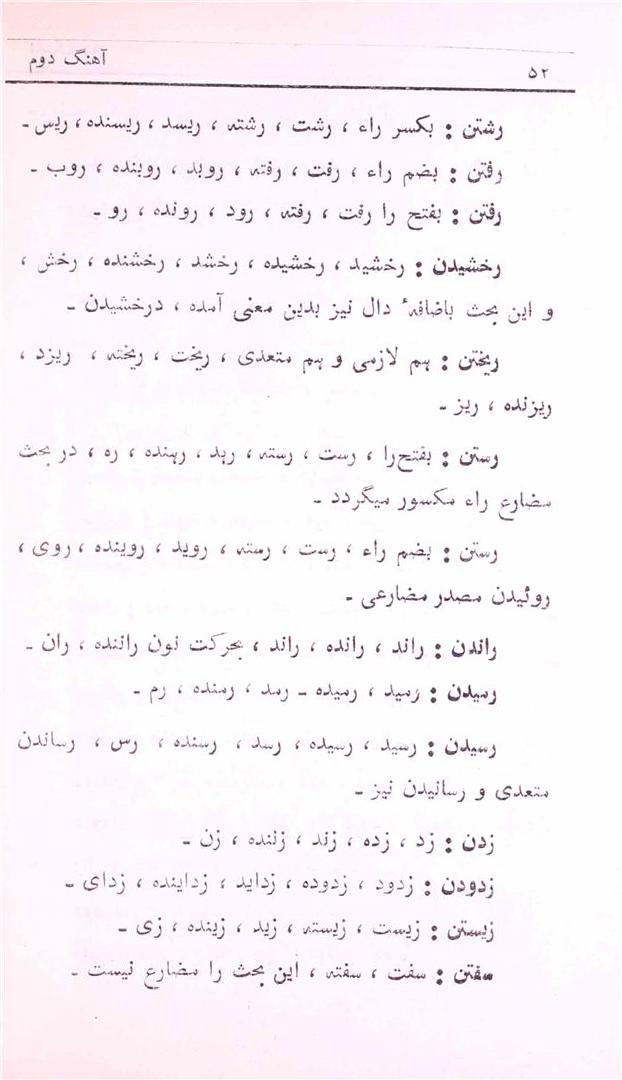 ۵۲ آهنگ دوم
رشتن : بکسر راء ، رشت ، رشته ، ریسد ، ریسنده ، ریس ـ
رفتن : بضم راء ، رفت ، رفته ، روبد ، روبنده ، روب ـ
رفتن : بفتح را رفت ، رفته ، رود ، رونده ، رو ـ
رخشیدن : رخشید ، رخشیده ، رخشد ، رخشنده ، رخش ،
و این بحث باضافهٔ دال نیز بدین معنی آمده ، درخشیدن ـ
ریختن : هم لازمی و هم متعدی ، ریخت ، ریخته ، ریزد ،
ریزنده ، ریز ـ
رستن : بفتح‌را ، رست ، رسته ، رهد ، رهنده ، ره ، در بحث
مضارع راء مکسور میگردد ـ
رستن : بضم راء ، رست ، رسته ، روید ، روینده ، روی ،
روئیدن مصدر مضارعی ـ
راندن : راند ، رانده ، راند ، بحرکت نون راننده ، ران ـ
رمیدن : رمید ، رمیده ـ رمد ، رمنده ، رم ـ
رسیدن : رسید ، رسیده ، رسد ، رسنده ، رس ، رساندن
متعدی و رسانیدن نیز ـ
زدن : زد ، زده ، زند ، زننده ، زن ـ
زدودن : زدود ، زدوده ، زداید ، زداینده ، زدای ـ
زیستن : زیست ، زیسته ، زید ، زینده ، زی ـ
سفتن : سفت ، سفته ، این بحث را مضارع نیست ـ